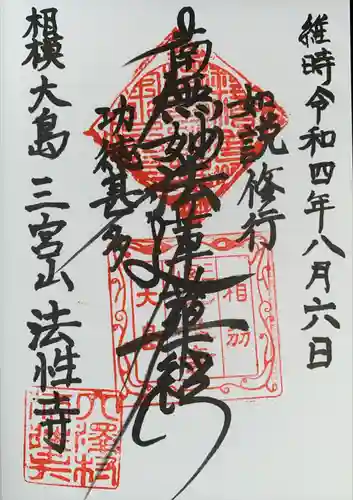 維時令和四年八月六日
如説修行
南無妙法蓮華経
功徳甚多
相模大島三宮山法性寺
相州
大島